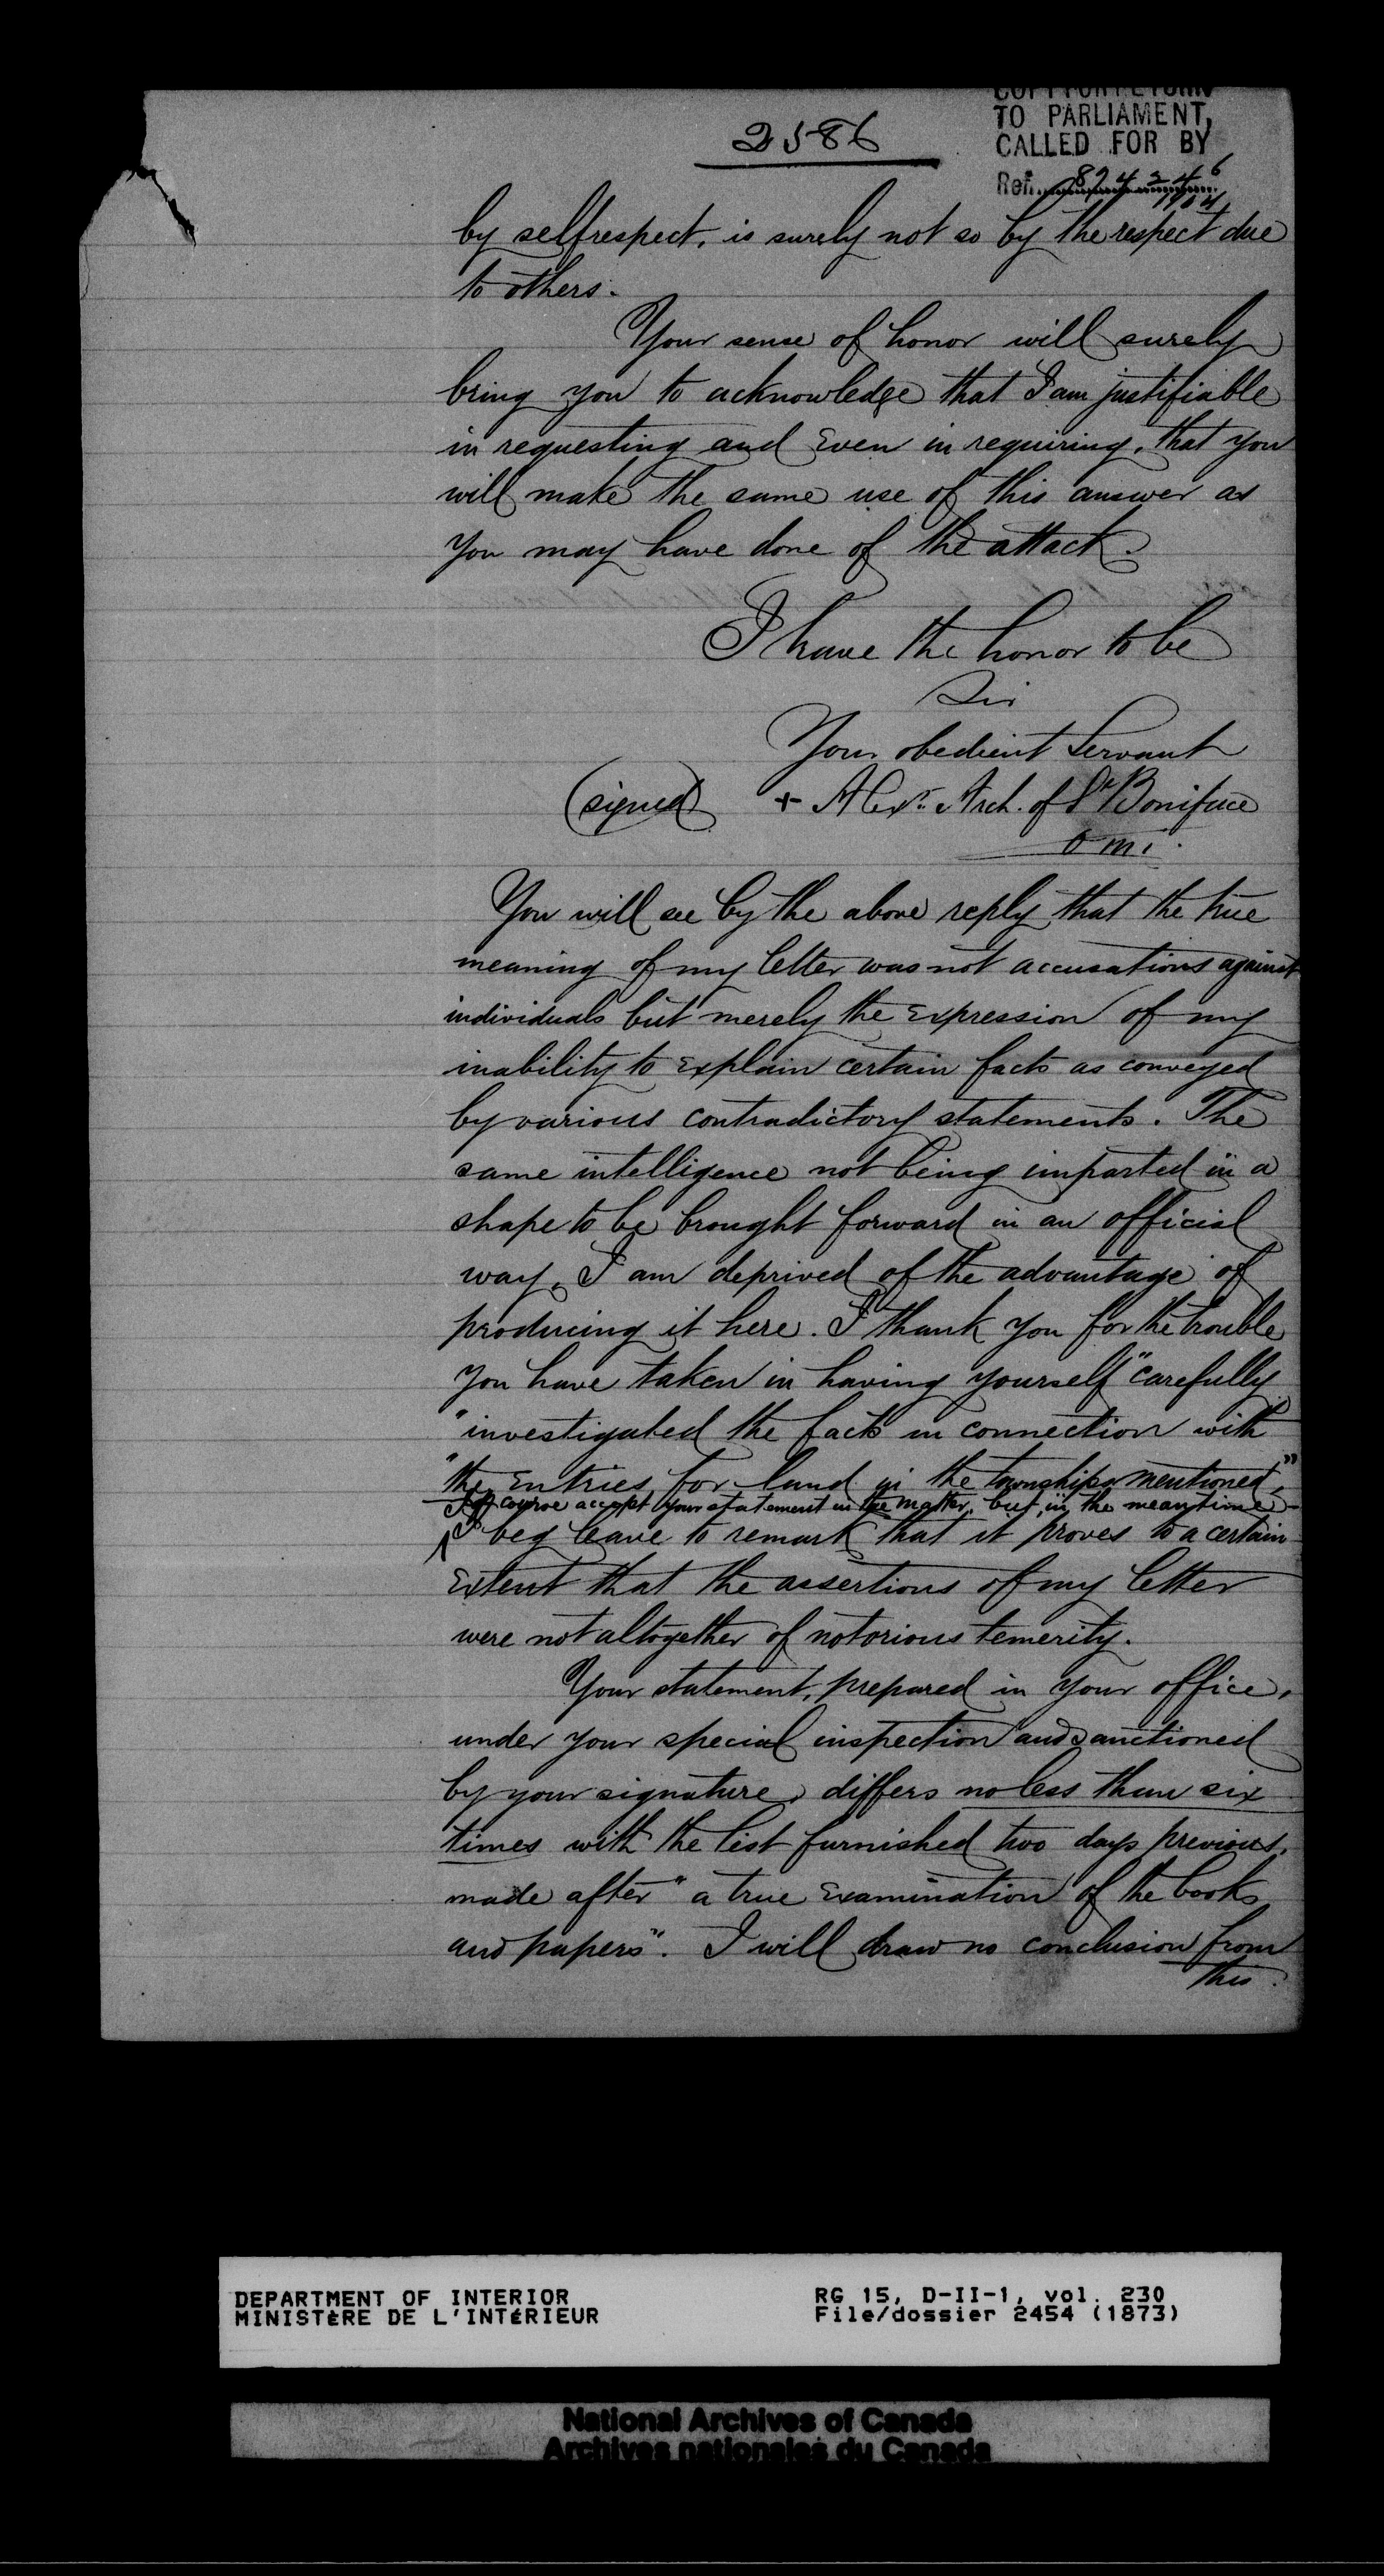 2586
COPY FOR RETURN
TO PARLIAMENT,
CALLED FOR BY
Ref. 824246
by selfrespect, is surely not so by the respect due
to others.
Your sense of honor will surely
bring you to acknowledge that I am justifiable
in requesting and even in requiring, that you
will make the same use of this answer as
you may have done of the attack.
I have the honor to be
Sir
Your obedient Servant
(signed) + Alexr. Arch. of St Boniface
O m i.
You will see by the above reply that the true
meaning of my letter was not accusations against
individuals but merely the expression of my
inability to explain certain facts as conveyed
by various contradictory statements. The
same intelligence not being imparted in a
shape to be brought forward in an official
way, I am deprived of the advantage of
producing it here. I thank you for the trouble
you have taken in having yourself "carefully
"investigated the facts in connection with
"the entries for land in the townships mentioned,"
I of course accept your statement in the matter, but, in the meantime
I beg leave to remark that it proves to a certain
extent that the assertions of my letter
were not altogether of notorious temerity.
Your statement, prepared in your office,
under your special inspection and sanctioned
by your signature, differs no less than six
times with the list furnished two days previous,
made after "a true examination of the books
and papers". I will draw no conclusion from
this.
DEPARTMENT OF INTERIOR
MINISTÈRE DE L'INTÉRIEUR
RG 15, D-II-1, vol. 230
File/dossier 2454 (1873)
National Archives of Canada
Archives nationales du Canada